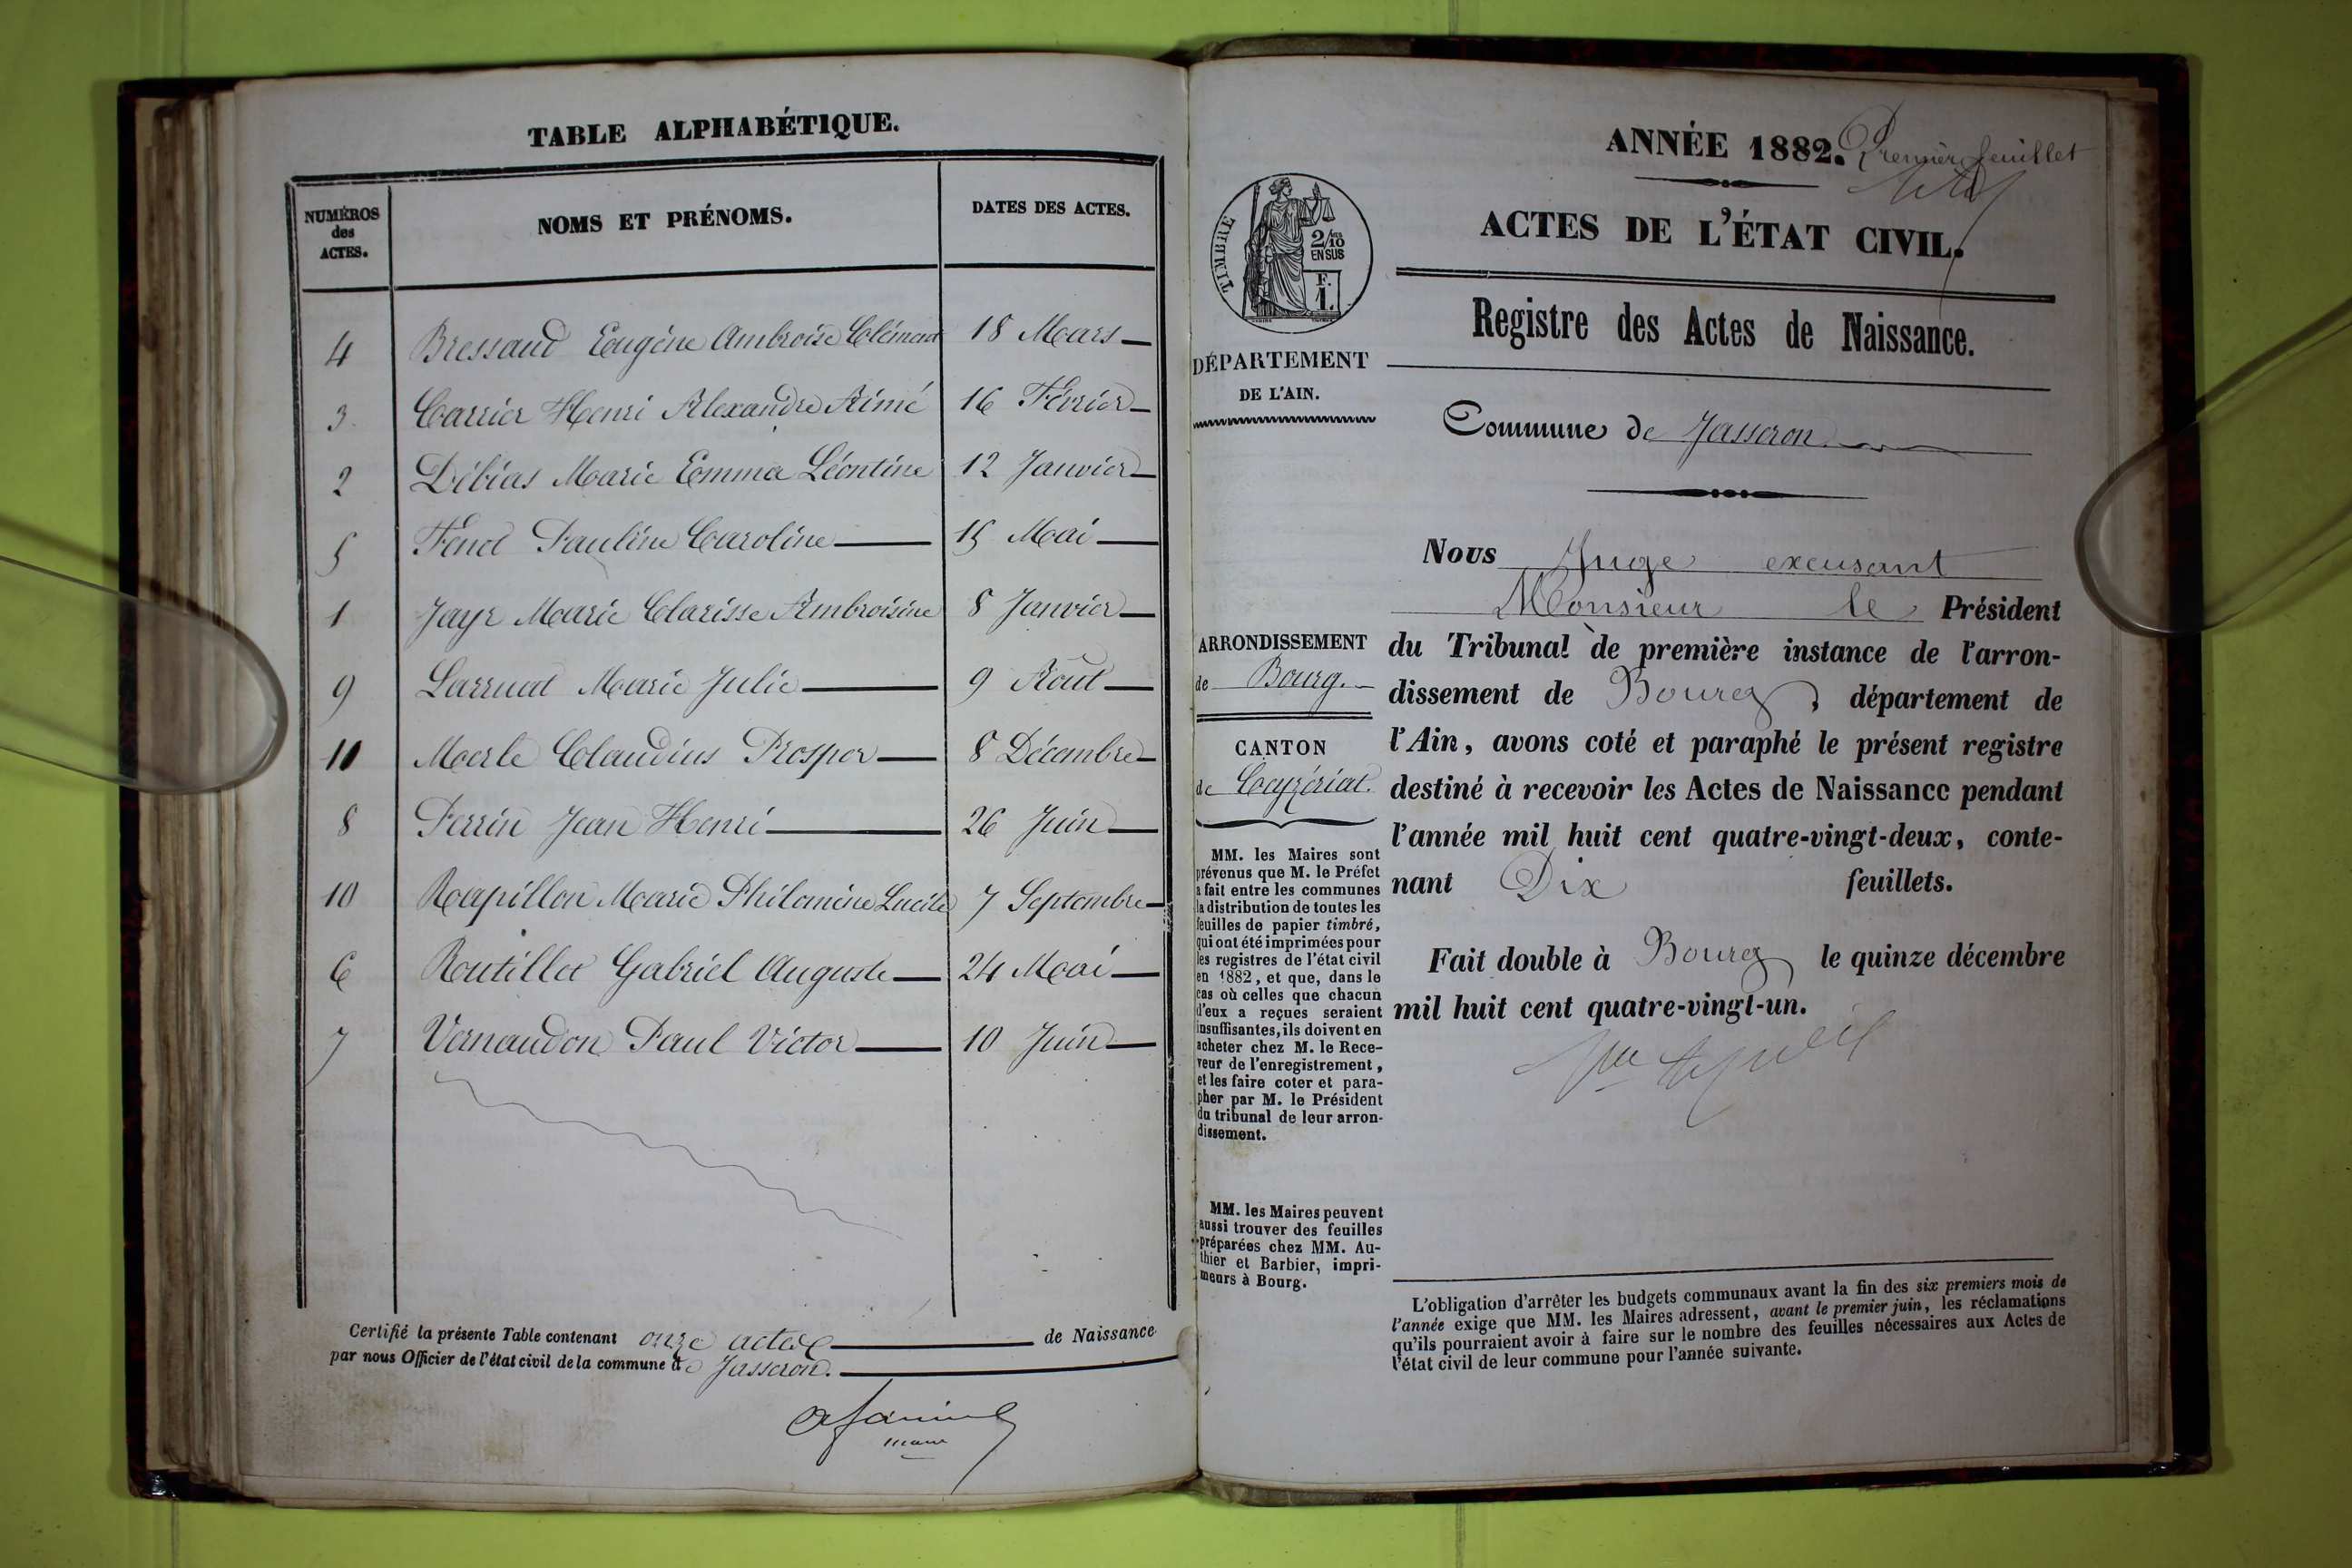 TABLE ALPHABÉTIQUE.
NUMÉROS des ACTES.
NOMS ET PRÉNOMS.
DATES DES ACTES.
4 Bressand Eugène Ambroise Clément 18 Mars
3 Carrier Henri Alexandre Aimé 16 Février
2 Débias Marie Emma Léontine 12 Janvier
5 Pauline Caroline 15 Mai
1 Jayr Marie Clarisse Ambroisine 8 Janvier
9 Larruat Marie Julie 9 Août
11 Merle Claudius Prosper 8 Décembre
8 Perrin Jean Henri 26 Juin
10 Rapillon Marie Philomène Lucile 7 Septembre
6 Routillet Gabriel Auguste 24 Mai
7 Vernaudon Paul Victor 10 Juin
Certifié la présente Table contenant onze actes de Naissance
par nous Officier de l'état civil de la commune de Jasseron.
maire
ANNÉE 1882. Premier feuillet
ACTES DE L'ÉTAT CIVIL.
TIMBRE
2/10
EN SUS
Registre des Actes de Naissance.
DÉPARTEMENT
DE L'AIN.
Commune de Jasseron
Nous Juge excusant
Monsieur le Président
du Tribunal de première instance de l'arron-
dissement de Bourg, département de
l'Ain, avons coté et paraphé le présent registre
destiné à recevoir les Actes de Naissance pendant
l'année mil huit cent quatre-vingt-deux, conte-
nant Dix feuillets.
Fait double à Bourg le quinze décembre
mil huit cent quatre-vingt-un.
ARRONDISSEMENT
de Bourg.
CANTON
de Ceyzériat.
MM. les Maires sont
prévenus que M. le Préfet
a fait entre les communes
la distribution de toutes les
feuilles de papier timbré,
qui ont été imprimées pour
les registres de l'état civil
en 1882, et que, dans le
cas où celles que chacun
d'eux a reçues seraient
insuffisantes, ils doivent en
acheter chez M. le Rece-
veur de l'enregistrement,
et les faire coter et para-
pher par M. le Président
du tribunal de leur arron-
dissement.
MM. les Maires peuvent
aussi trouver des feuilles
préparées chez MM. Au-
thier et Barbier, impri-
meurs à Bourg.
L'obligation d'arrêter les budgets communaux avant la fin des six premiers mois de
l'année exige que MM. les Maires adressent, avant le premier juin, les réclamations
qu'ils pourraient avoir à faire sur le nombre des feuilles nécessaires aux Actes de
l'état civil de leur commune pour l'année suivante.